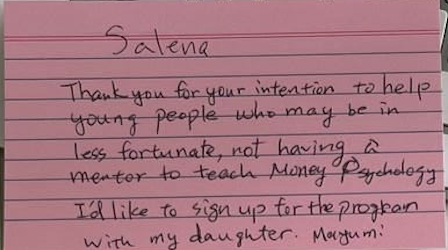 Salena
Thank you for your intention to help
young people who may be in
less fortunate, not having a
mentor to teach Money Psychology
I'd like to sign up for the program
with my daughter. Mayumi